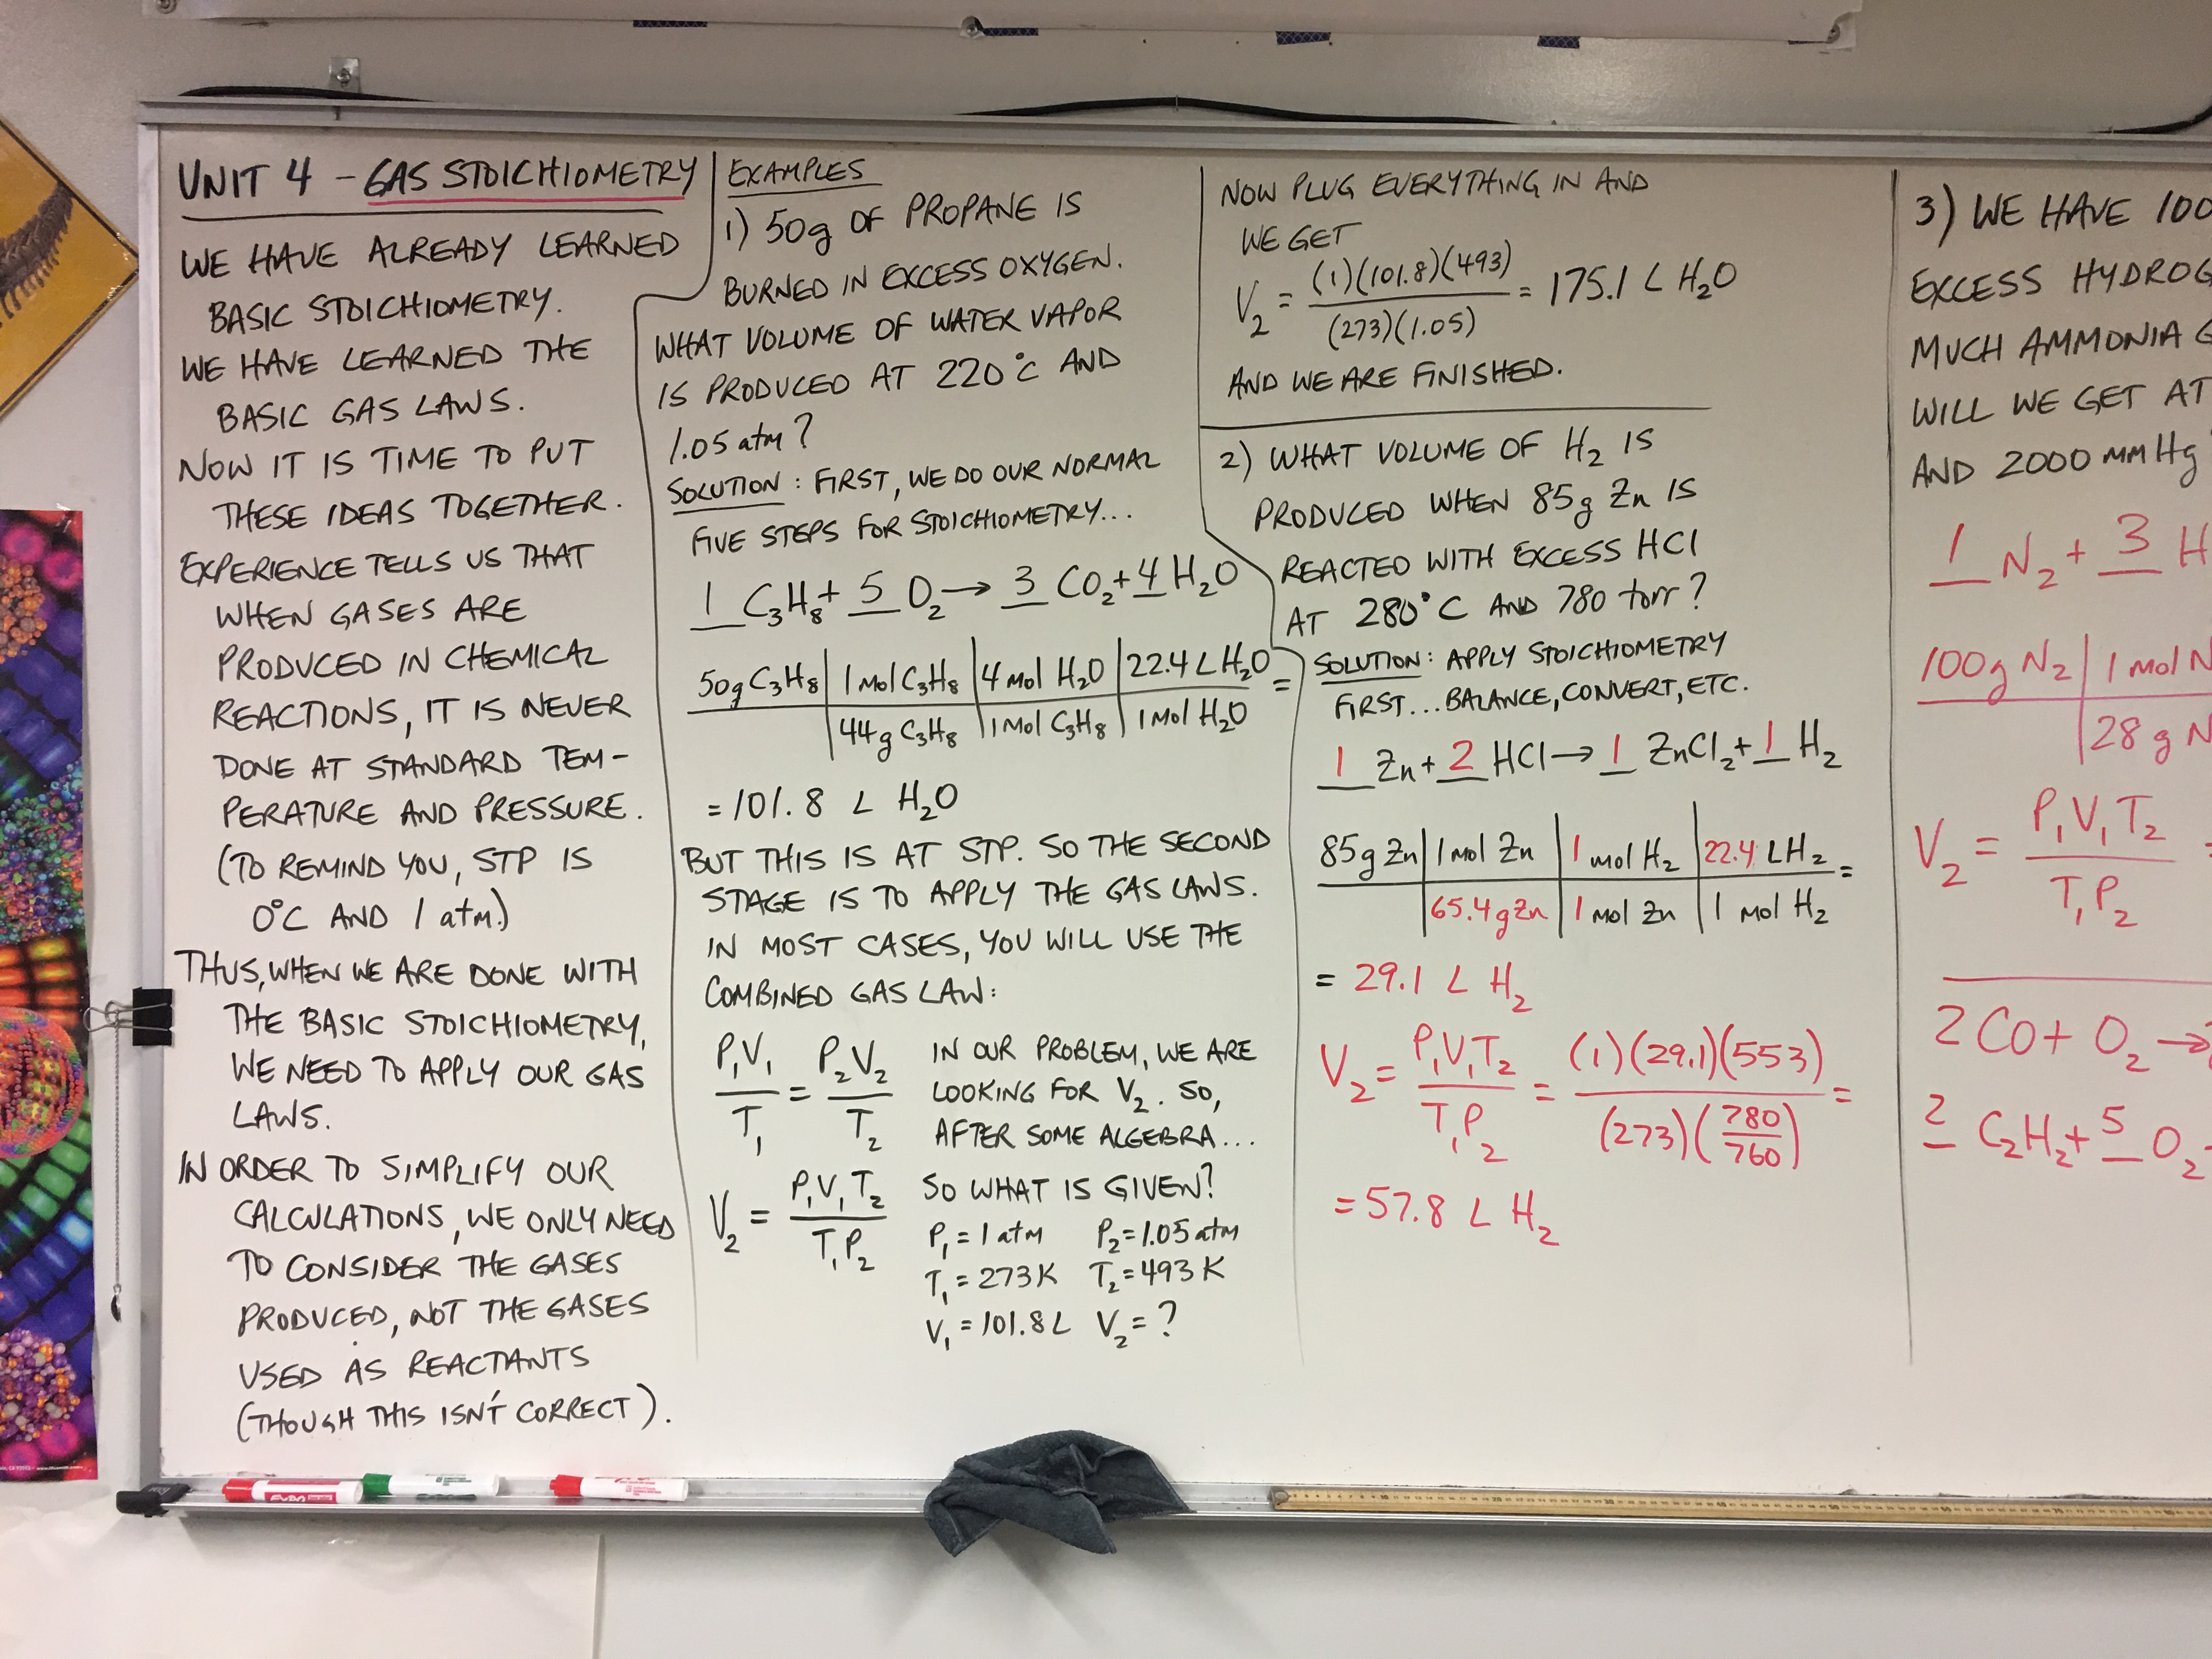 UNIT 4 – GAS STOICHIOMETRY
WE HAVE ALREADY LEARNED
BASIC STOICHIOMETRY.
WE HAVE LEARNED THE
BASIC GAS LAWS.
NOW IT IS TIME TO PUT
THESE IDEAS TOGETHER.
EXPERIENCE TELLS US THAT
WHEN GASES ARE
PRODUCED IN CHEMICAL
REACTIONS, IT IS NEVER
DONE AT STANDARD TEM-
PERATURE AND PRESSURE.
(TO REMIND YOU, STP IS
0°C AND 1 atm.)
THUS, WHEN WE ARE DONE WITH
THE BASIC STOICHIOMETRY,
WE NEED TO APPLY OUR GAS
LAWS.
IN ORDER TO SIMPLIFY OUR
CALCULATIONS, WE ONLY NEED
TO CONSIDER THE GASES
PRODUCED, NOT THE GASES
USED AS REACTANTS
(THOUGH THIS ISN'T CORRECT).
EXAMPLES
1) 50g OF PROPANE IS
BURNED IN EXCESS OXYGEN.
WHAT VOLUME OF WATER VAPOR
IS PRODUCED AT 220°C AND
1.05 atm?
SOLUTION: FIRST, WE DO OUR NORMAL
FIVE STEPS FOR STOICHIOMETRY...
1 C₃H₈ + 5 O₂ → 3 CO₂ + 4 H₂O
50g C₃H₈ | 1 mol C₃H₈ | 4 mol H₂O | 22.4 L H₂O =
44g C₃H₈ | 1 mol C₃H₈ | 1 mol H₂O
= 101.8 L H₂O
BUT THIS IS AT STP. SO THE SECOND
STAGE IS TO APPLY THE GAS LAWS.
IN MOST CASES, YOU WILL USE THE
COMBINED GAS LAW:
P₁V₁/T₁ = P₂V₂/T₂
IN OUR PROBLEM, WE ARE
LOOKING FOR V₂. SO,
AFTER SOME ALGEBRA...
V₂ = P₁V₁T₂/T₁P₂
SO WHAT IS GIVEN?
P₁ = 1 atm P₂ = 1.05 atm
T₁ = 273K T₂ = 493K
V₁ = 101.8L V₂ = ?
NOW PLUG EVERYTHING IN AND
WE GET
V₂ = (1)(101.8)(493)/(273)(1.05) = 175.1 L H₂O
AND WE ARE FINISHED.
2) WHAT VOLUME OF H₂ IS
PRODUCED WHEN 85g Zn IS
REACTED WITH EXCESS HCl
AT 280°C AND 780 torr?
SOLUTION: APPLY STOICHIOMETRY
FIRST... BALANCE, CONVERT, ETC.
1 Zn + 2 HCl → 1 ZnCl₂ + 1 H₂
85g Zn | 1 mol Zn | 1 mol H₂ | 22.4 L H₂ =
65.4 g Zn | 1 mol Zn | 1 mol H₂
= 29.1 L H₂
V₂ = P₁V₁T₂/T₁P₂ = (1)(29.1)(553)/(273)(780/760) =
= 57.8 L H₂
3) WE HAVE 100
EXCESS HYDROG
MUCH AMMONIA G
WILL WE GET AT
AND 2000 mmHg
1 N₂ + 3 H
100g N₂ | 1 mol N
28 g N
V₂ = P₁V₁T₂/T₁P₂ =
2 CO + O₂ →
2 C₂H₂ + 5 O₂
EXPO